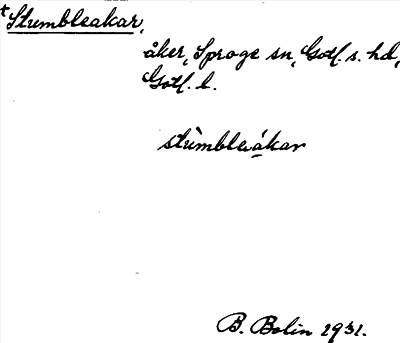 +Stumbleakar,
åker, Sproge sn, Gotl. s. hd,
Gotl. l.
stùmbleákar
B. Bolin 1931.